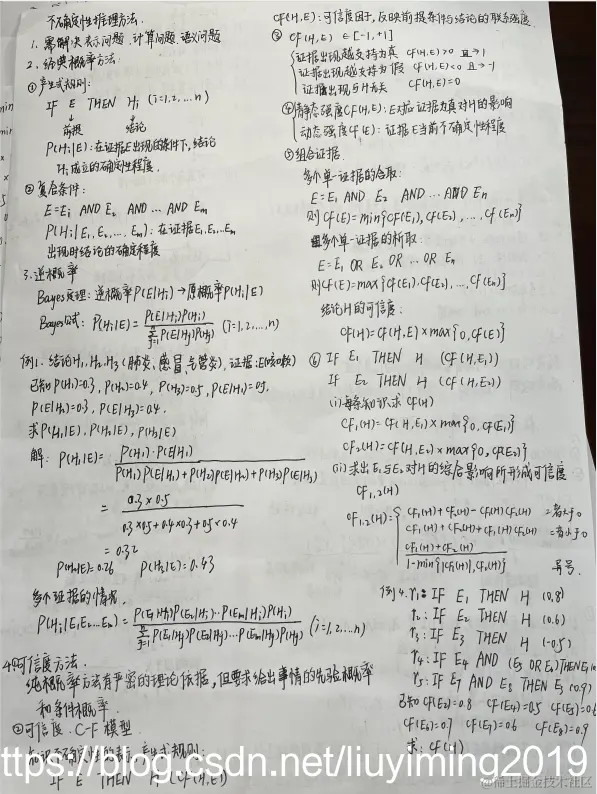 不确定性推理方法.
1. 需解决表示问题. 计算问题. 语义问题
2. 经典概率方法:
① 产生式规则:
IF E THEN Hi (i=1,2,...n)
前提 结论
P(Hi|E): 在证据E出现的条件下, 结论
Hi成立的确定性程度.
② 复合条件:
E=Ei AND E2 AND ... AND Em
P(Hi|E1, E2, ... Em): 在证据E1,E2...Em
出现时结论的确定程度
3. 逆概率
Bayes定理: 逆概率P(E|Hi)→原概率P(Hi|E)
Bayes公式: P(Hi|E)= P(E|Hi)P(Hi) / Σ(j=1..n) P(E|Hj)P(Hj) (i=1,2,...,n)
例1. 结论H1,H2,H3 (肺炎, 感冒, 气管炎), 证据:E(咳嗽)
已知P(H1)=0.3, P(H2)=0.4, P(H3)=0.5, P(E|H1)=0.5,
P(E|H2)=0.3, P(E|H3)=0.4.
求P(H1|E), P(H2|E), P(H3|E)
解: P(H1|E)= P(H1)·P(E|H1) / P(H1)P(E|H1)+P(H2)P(E|H2)+P(H3)P(E|H3)
= 0.3×0.5 / 0.3×0.5+0.4×0.3+0.5×0.4
= 0.32
P(H2|E)=0.26 P(H3|E)=0.43
多个证据的情况.
P(Hi|E1,E2...Em)= P(E1|Hi)P(E2|Hi)...P(Em|Hi)P(Hi) / Σ(j=1..n) P(E1|Hj)P(E2|Hj)...P(Em|Hj)P(Hj) (i=1,2,...,n)
4. 可信度方法.
纯概率方法有严密的理论依据, 但要求给出事情的先验概率
和条件概率.
可信度. C-F 模型
产生式规则:
IF E THEN H (CF(H,E))
CF(H,E): 可信度因子, 反映前提条件与结论的联系强度.
③ CF(H,E) ∈[-1,+1]
证据出现越支持为真 CF(H,E)>0 且→1
证据出现越支持为假 CF(H,E)<0 且→-1
证据出现与H无关 CF(H,E)=0
④ 静态强度CF(H,E): E对应证据为真对H的影响
动态强度CF(E): 证据E当前不确定性程度
⑤ 组合证据.
多个单一证据的合取:
E=E1 AND E2 AND ... AND En
则CF(E)=min{CF(E1), CF(E2), ..., CF(En)}
多个单一证据的析取:
E=E1 OR E2 OR ... OR En
则CF(E)=max{CF(E1), CF(E2), ..., CF(En)}
结论H的可信度:
CF(H)=CF(H,E)×max{0, CF(E)}
⑥ IF E1 THEN H (CF(H,E1))
IF E2 THEN H (CF(H,E2))
(i)每条知识求CF(H)
CF1(H)=CF(H,E1)×max{0, CF(E1)}
CF2(H)=CF(H,E2)×max{0, CF(E2)}
(ii)求出E1与E2对H的综合影响所形成可信度
CF1,2(H)
CF1,2(H)=
CF1(H)+CF2(H)-CF1(H)CF2(H) 二者大于0
CF1(H)+CF2(H)+CF1(H)CF2(H) 二者小于0
CF1(H)+CF2(H) / 1-min{|CF1(H)|, CF2(H)} 异号.
例4. r1: IF E1 THEN H (0.8)
r2: IF E2 THEN H (0.6)
r3: IF E3 THEN H (-0.5)
r4: IF E4 AND (E5 OR E6) THEN E1
r5: IF E7 AND E8 THEN E3 (0.9)
已知CF(E2)=0.8 CF(E4)=0.5 CF(E5)=0.6
CF(E6)=0.7 CF(E7)=0.6 CF(E8)=0.9
求: CF(H)
ttps://blog.csdn.net/liuyiming2019
@稀土掘金技术社区